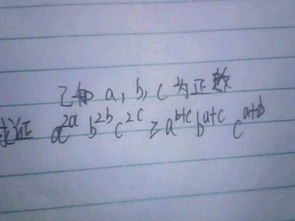 已知 a, b, c 为正数
求证 a^{2a} b^{2b} c^{2c} ≥ a^{b+c} b^{a+c} c^{a+b}